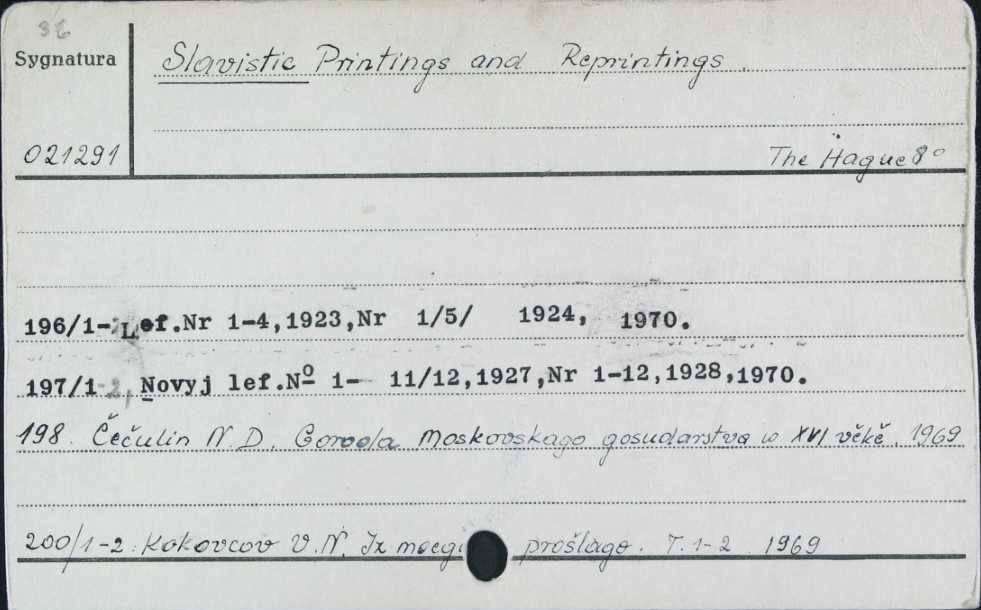 36
Sygnatura
Slavistic Printings and Reprintings.
021291
The Hague 8°
196/1-2 Lef.Nr 1-4,1923,Nr 1/5/ 1924, 1970.
197/1-2, Novyj lef.Nº 1- 11/12,1927,Nr 1-12,1928,1970.
198. Čečulin N.D. Goroda Moskovskago gosudarstva w XVI věkě. 1969
200/1-2. Kokovcov V.N. Iz moego prošlago. T.1-2 1969